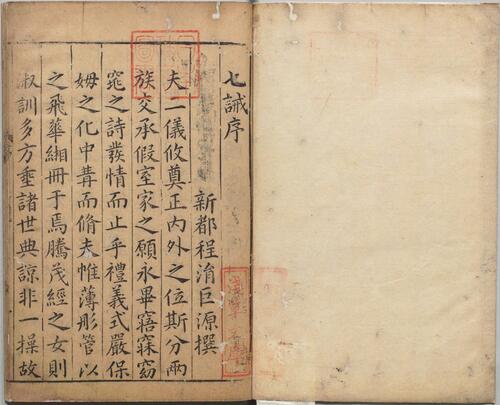 七誡序
新都程涓巨源撰
夫二儀攸奠正內外之位斯分兩
族交承假室家之願永畢窹寐窈
窕之詩發情而止乎禮義式嚴保
姆之化中冓而脩夫帷薄彤管以
之飛華緗冊于焉騰茂經之女則
淑訓多方垂諸世典諒非一操故